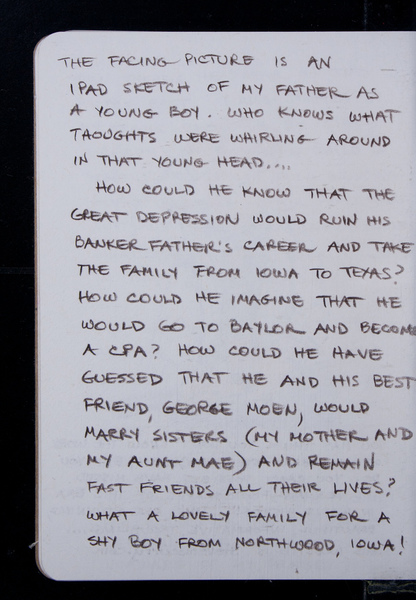 THE FACING PICTURE IS AN
IPAD SKETCH OF MY FATHER AS
A YOUNG BOY. WHO KNOWS WHAT
THOUGHTS WERE WHIRLING AROUND
IN THAT YOUNG HEAD....
HOW COULD HE KNOW THAT THE
GREAT DEPRESSION WOULD RUIN HIS
BANKER FATHER'S CAREER AND TAKE
THE FAMILY FROM IOWA TO TEXAS?
HOW COULD HE IMAGINE THAT HE
WOULD GO TO BAYLOR AND BECOME
A CPA? HOW COULD HE HAVE
GUESSED THAT HE AND HIS BEST
FRIEND, GEORGE MOEN, WOULD
MARRY SISTERS (MY MOTHER AND
MY AUNT MAE) AND REMAIN
FAST FRIENDS ALL THEIR LIVES?
WHAT A LOVELY FAMILY FOR A
SHY BOY FROM NORTHWOOD, IOWA!